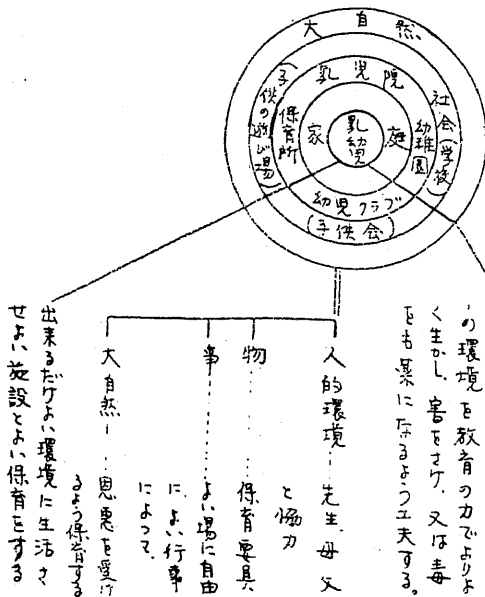 大自然
社会(学校)
(子供の遊び場)
(子供会)
乳児院
幼稚園
保育所
幼児クラブ
家庭
乳幼児
の環境を教育の力でよりよ
く生かし、害をさけ、又は毒
をも薬になるよう工夫する。
人的環境……先生、母父
と協力
物……保育要具
事……よい場に自由
に、よい行事
によって、
大自然……恩恵を受け
るよう保育する
出来るだけよい環境に生活さ
せよい施設とよい保育をする